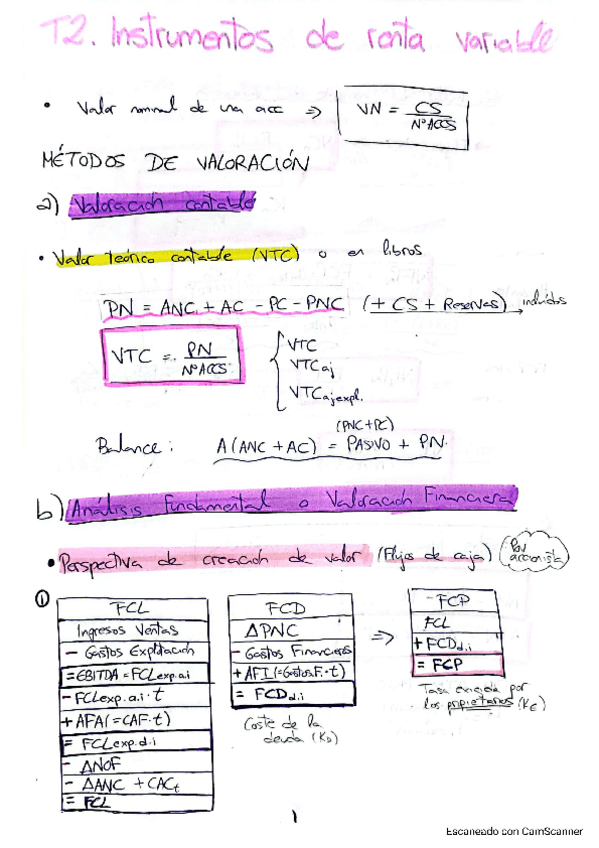 T2. Instrumentos de renta variable
• Valor nominal de una acc ⇒ VN = CS / NºACCS
MÉTODOS DE VALORACIÓN
a) Valoración contable
• Valor teórico contable (VTC) o en libros
PN = ANC + AC - PC - PNC (+ CS + Reservas) → incluidos
VTC = PN / NºACCS
VTC
VTCaj
VTCajexpl.
(PNC+PC)
Balance: A (ANC + AC) = PASIVO + PN.
b) Análisis Fundamental o Valoración Financiera
• Perspectiva de creación de valor (Flujos de caja) Para accionista
①
FCL
Ingresos Ventas
- Gastos Explotación
= EBITDA = FCLexp.a.i
- FCLexp.a.i · t
+ AFA (= CAF·t)
= FCLexp.d.i
- ΔNOF
- ΔANC + CACt
= FCL
FCD
ΔPNC
- Gastos Financieros
+ AFI (= GastosF.·t)
= FCDd.i
Coste de la
deuda (KD)
⇒
FCP
FCL
+ FCDd.i
= FCP
Tasa exigida por
los propietarios (KE)
1
Escaneado con CamScanner